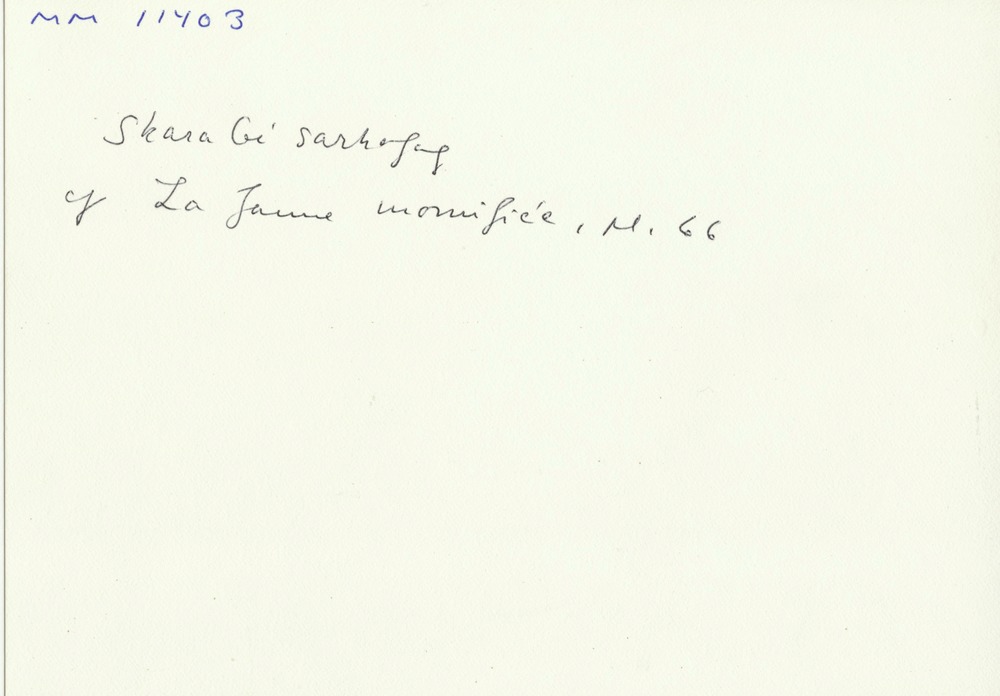 MM 11403
Skarabé sarkofag
cf La faune momifiée, N. 66